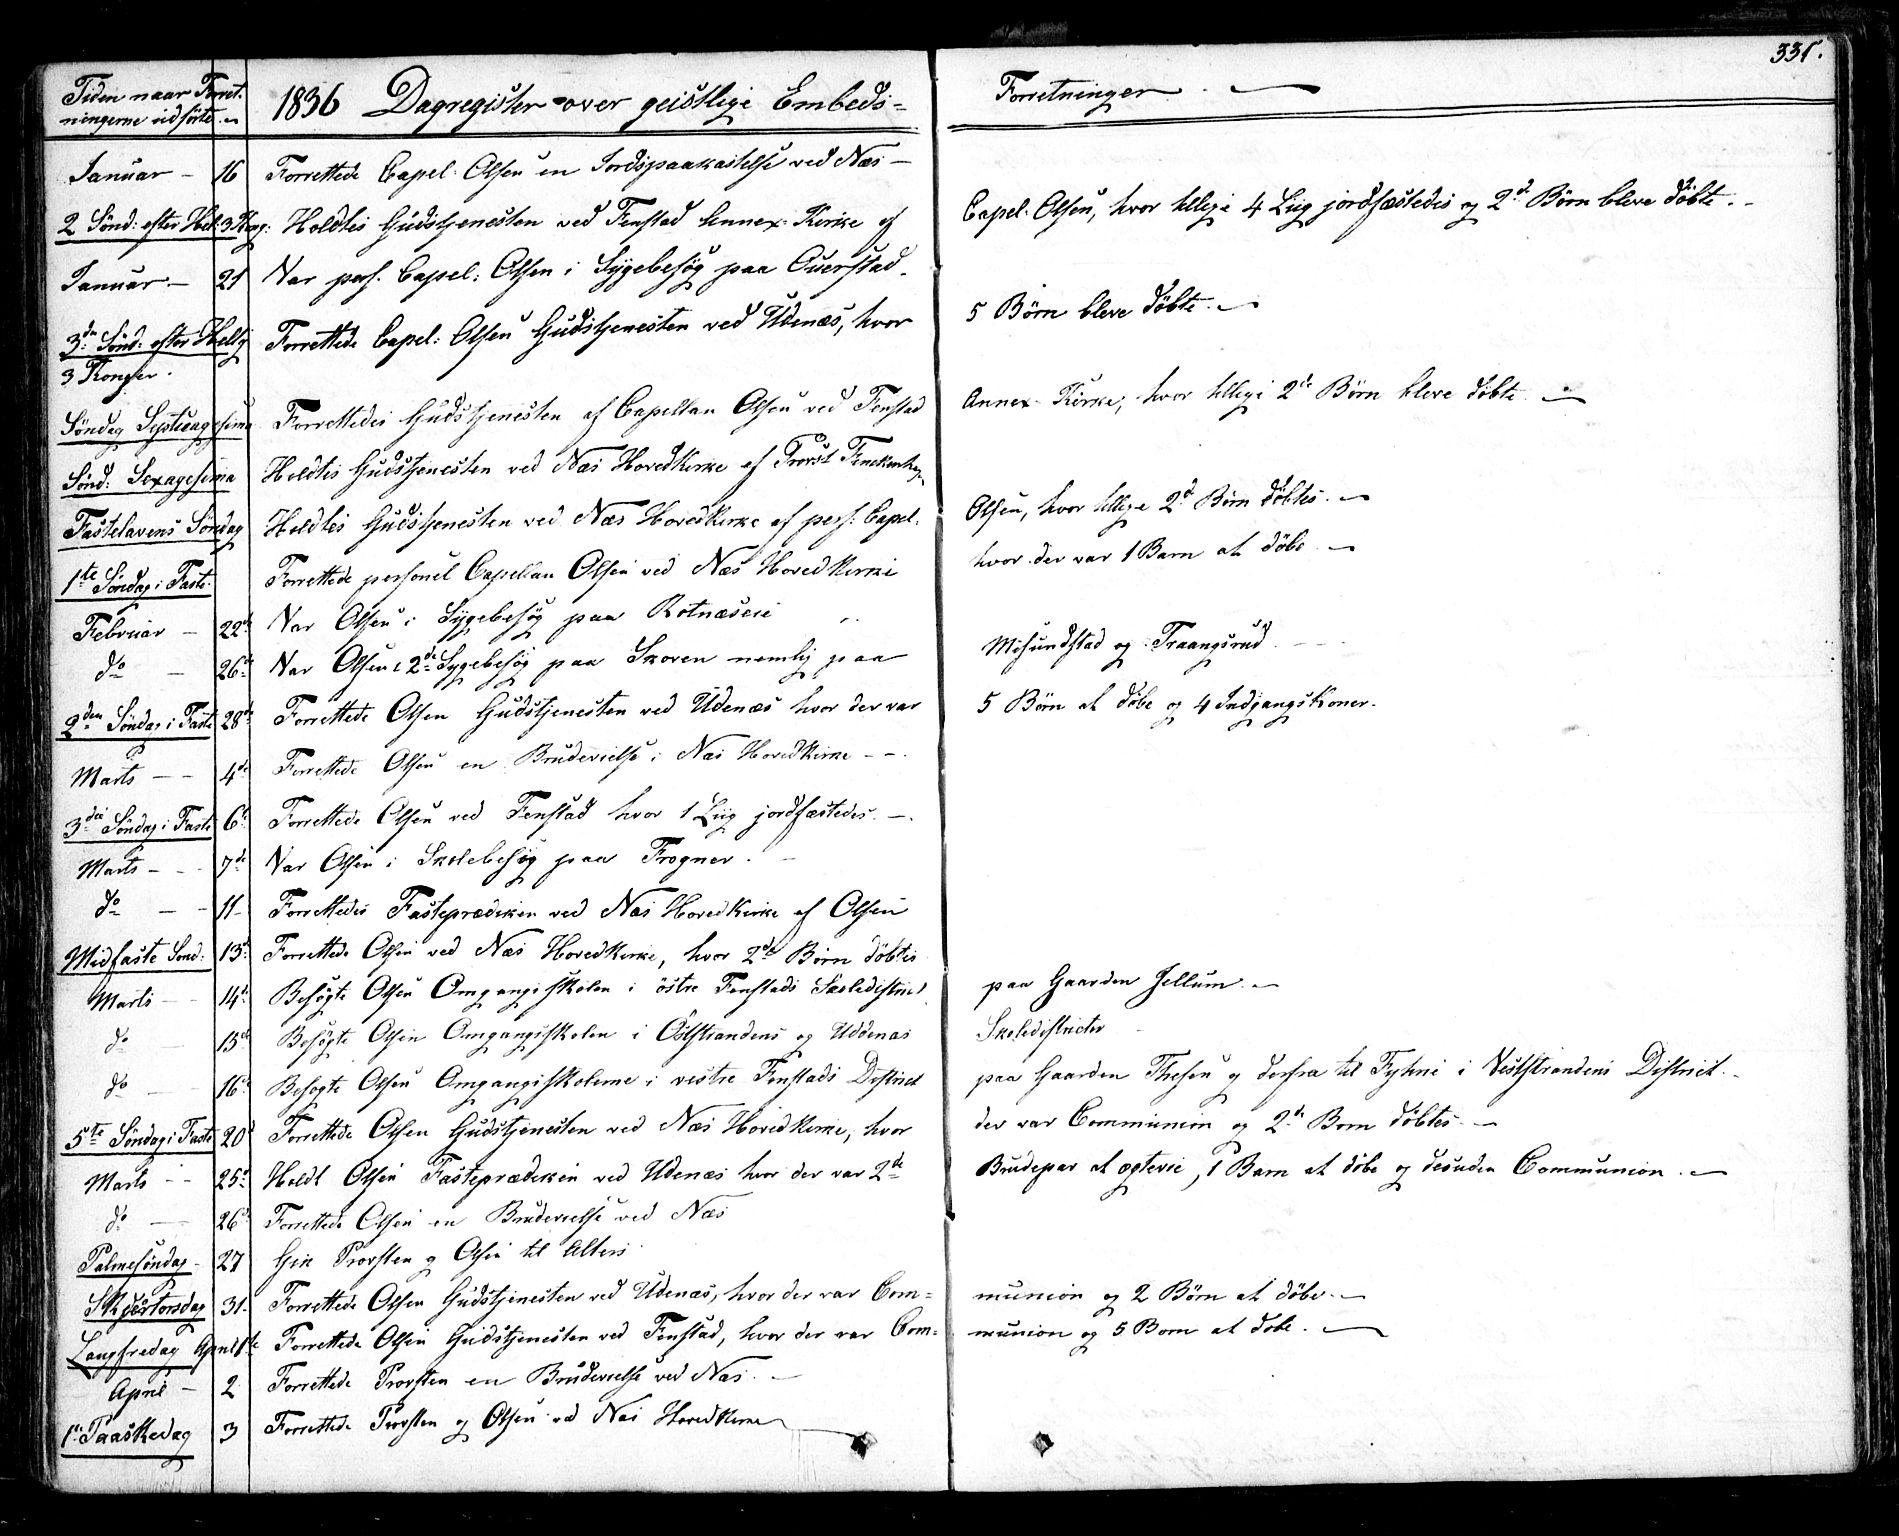 331.
Tiden naar Forret-
ningerne udførte.
1836 Dagregister over geistlige Embeds= Forretninger.
Januar - 16 Forrettede Capel. Olsen en Jordspaakastelse ved Næs -
2 Sönd: efter Hel: 3 Kong: Holdtes Gudstjenesten ved Fenstad Annex-Kirke af Capel: Olsen, hvor tillige 4 Liig jordfæstedes og 2de Börn bleve döbte.
Januar - 21 Var pers. Capel: Olsen i Sygebesög paa Ouerstad.
3die Sönd: efter Hellig 3 Konger. Forrettede Capel: Olsen Gudstjenesten ved Udenæs, hvor 5 Börn bleve döbte.
Söndag Septuagesima Forrettedes Gudstjenesten af Capellan Olsen ved Fenstad Annex-Kirke, hvor tillige 2de Börn bleve döbte
Sönd: Sexagesima Holdtes Gudstjenesten ved Næs Hovedkirke af Provst
Fastelavens Söndag Holdtes Gudstjenesten ved Næs Hovedkirke af pers: Capel: Olsen, hvor tillige 2de Börn döbtes.
1te Söndag i Faste. Forrettede personel Capellan Olsen ved Næs Hovedkirke hvor der var 1 Barn at döbe
Februar - 22de Var Olsen i Sygebesög paa Rotnæseie
do - 26de Var Olsen i 2de Sygebesög paa Skoven nemlig paa Misundstad og Traangsrud
2den Söndag i Faste 28de Forrettede Olsen Gudstjenesten ved Udenæs hvor der var 5 Börn at döbe og 4 Indgangskoner.
Marts - - 4de Forrettede Olsen en Brudevielse i Næs Hovedkirke - -
3die Söndag i Faste 6te Forrettede Olsen ved Fenstad hvor 1 Liig jordfæstedes. -
Marts - - 7de Var Olsen i Skolebesög paa Frogner.
do - - 11 Forrettedes Fasteprædiken ved Næs Hovedkirke af Olsen
Midfaste Sönd: 13de Forrettede Olsen ved Næs Hovedkirke, hvor 2de Börn döbtes
Marts - 14de Besögte Olsen Omgangsskolen i östre Fenstads Skoledistrict paa Gaarden Jellum.
do 15de Besögte Olsen Omgangsskolen i Öststrandens og Uddenæs Skoledistricter
do 16de Besögte Olsen Omgangsskolerne i vestre Fenstads District paa Gaarden Thesen og derfra til Fyhrie i Veststrandens District.
5te Söndag i Faste 20de Forrettede Olsen Gudstjenesten ved Næs Hovedkirke, hvor der var Communion og 2de Born döbtes
Marts - - 25de Holdt Olsen Fasteprædiken ved Udenæs hvor der var 2de Brudepar at ægtevie, 1 Barn at döbe og desuden Communion.
do - 26de Forrettede Olsen en Brudevielse ved Næs
Palmesöndag - 27 Gik Provsten og Olsen til Alters
Skjertorsdag 31. Forrettede Olsen Gudstjenesten ved Udenæs, hvor der var Com= munion og 2 Börn at döbe.
Langfredag April 1te Forrettede Olsen Gudstjenesten ved Fenstad, hvor der var Com= munion og 5 Born at döbe.
April - 2 Forrettede Provsten en Brudevielse ved Næs.
1te Paaskedag 3 Forrettede Provsten og Olsen ved Næs Hovedkirke